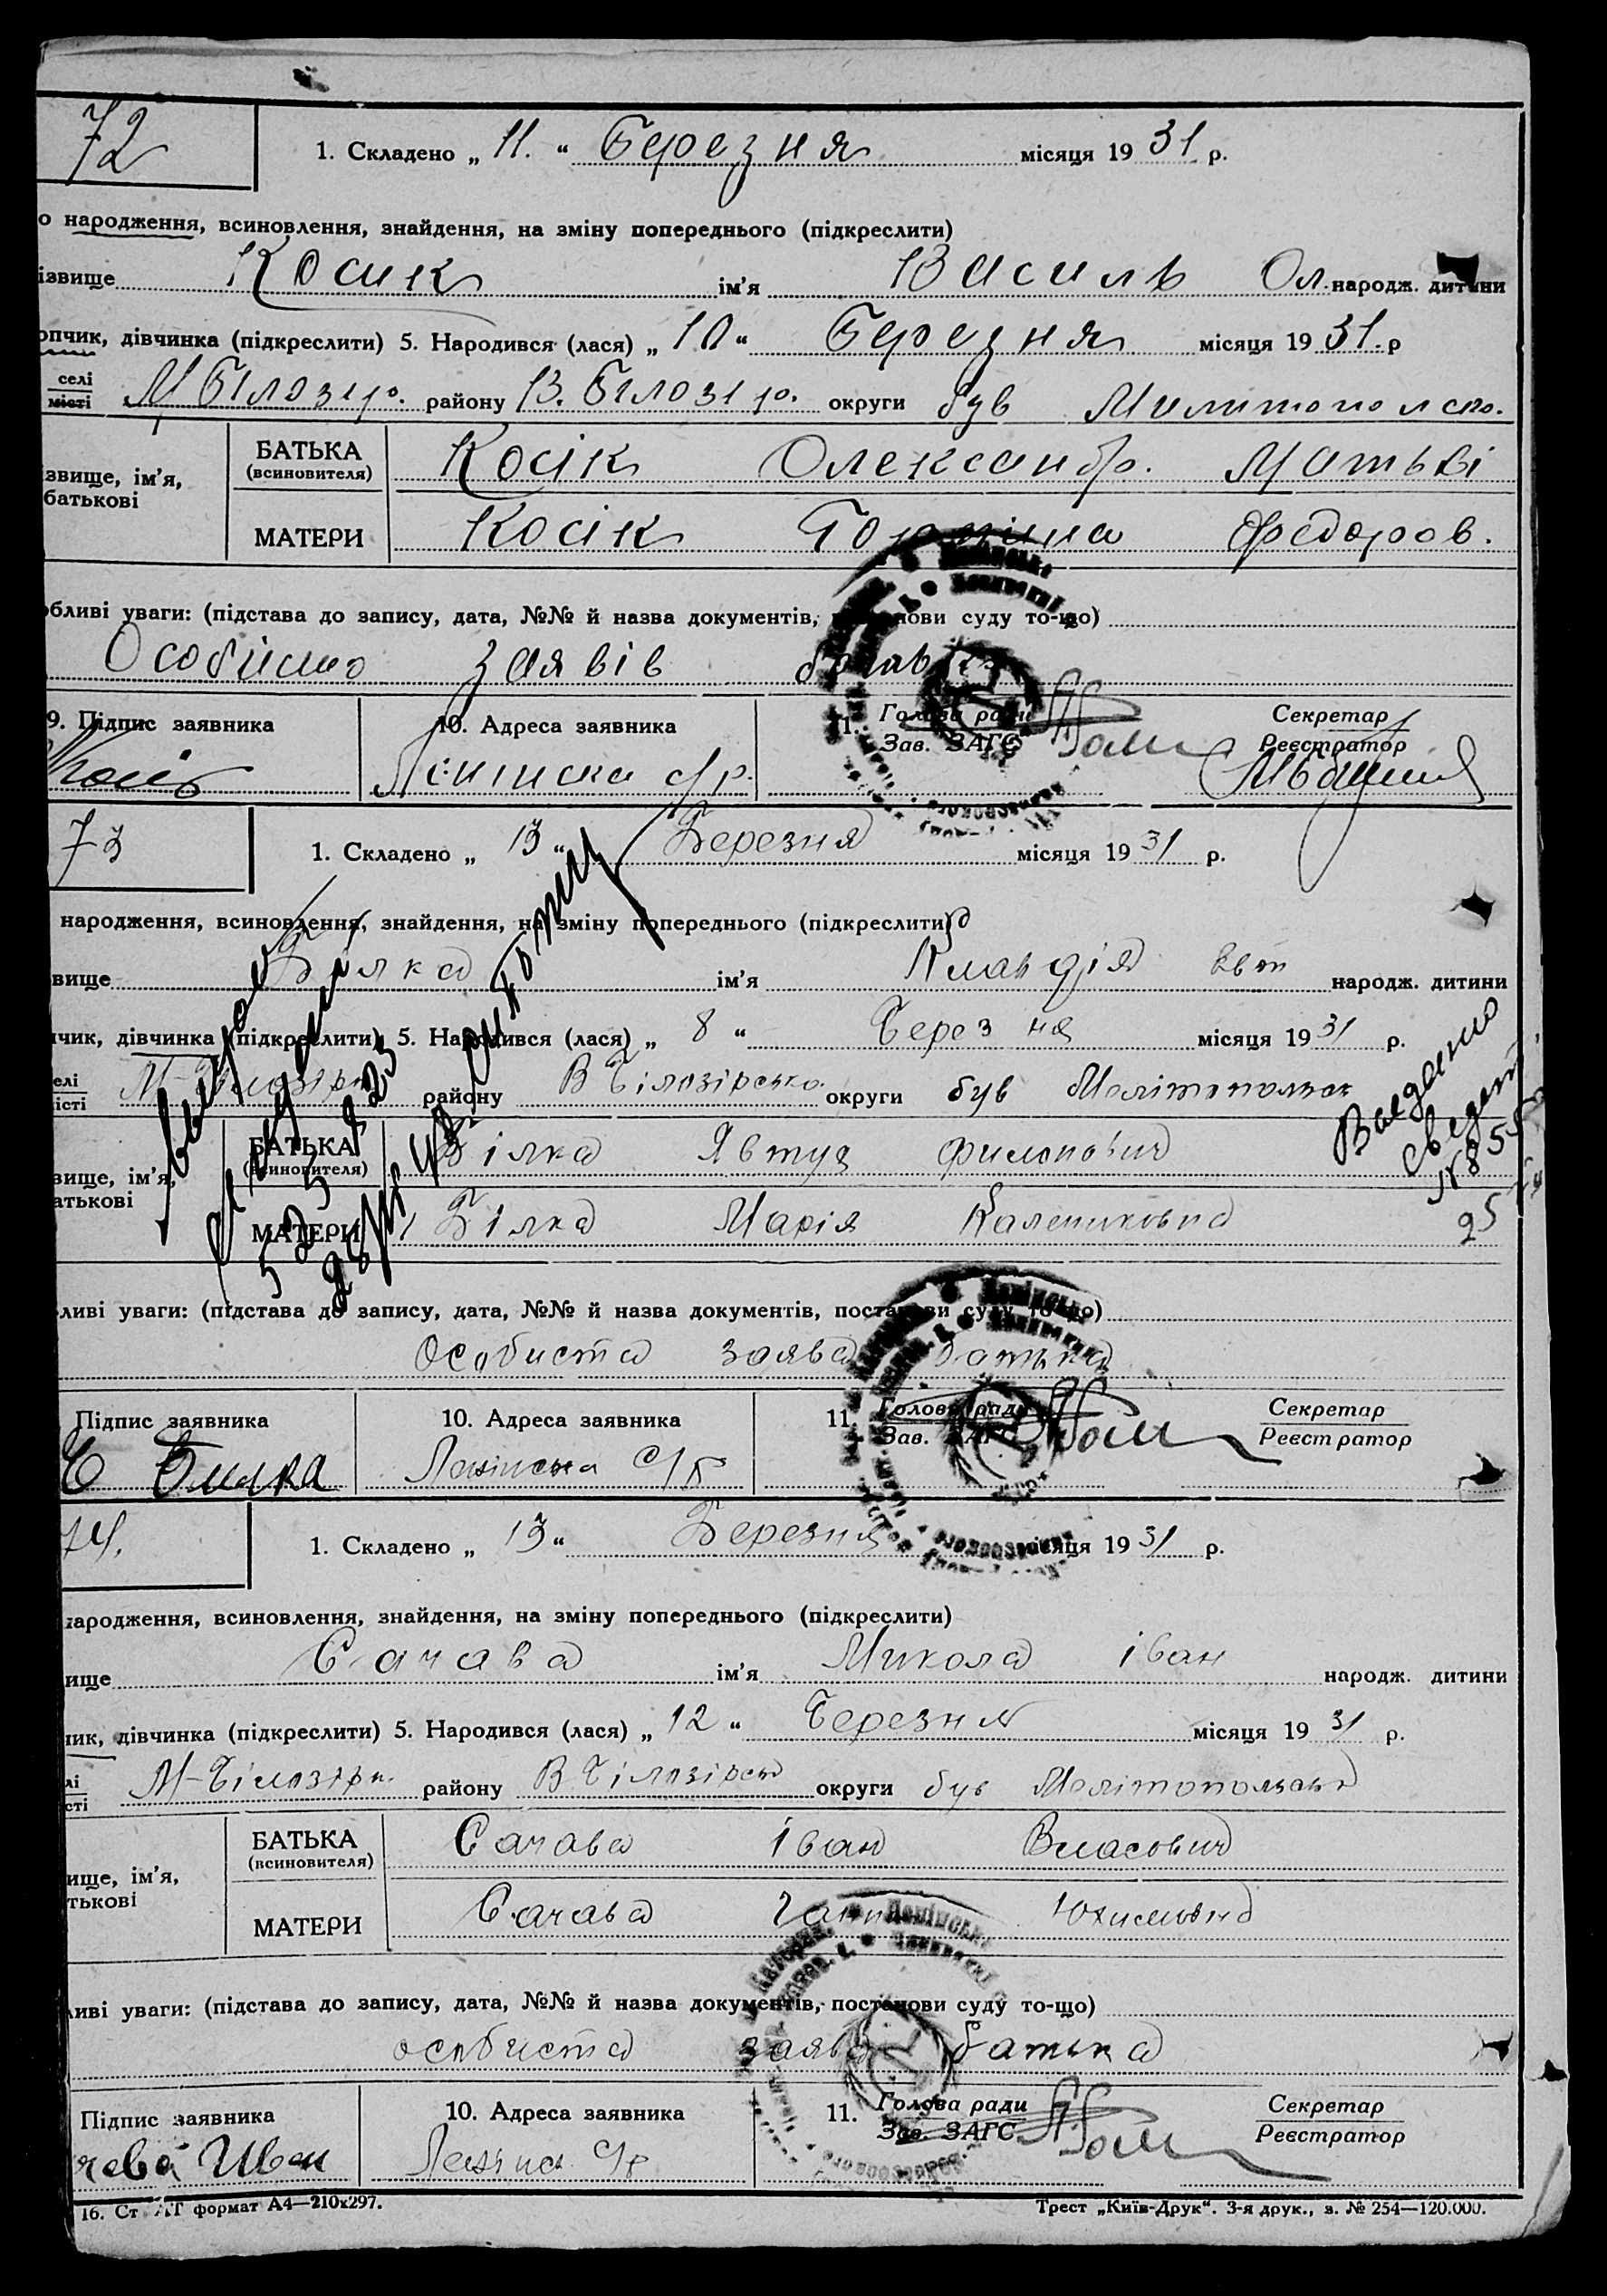 72
1. Складено „ 11. “ Березня місяця 19 31 р.
о народження, всиновлення, знайдення, на зміну попереднього (підкреслити)
ізвище Косик ім’я Василь Ол. народж. дитини
опчик, дівчинка (підкреслити) 5. Народився (лася) „ 10 “ Березня місяця 19 31. р
селі
місті М Білозір. району В. Білозір. округи був Милитополсь.
звище, ім’я,
батькові
БАТЬКА
(всиновителя) Косік Олександр. Матьві
МАТЕРИ Косік Федоров.
обливі уваги: (підстава до запису, дата, №№ й назва документів, постанови суду то-що)
Особисто заявів батько
9. Підпис заявника 10. Адреса заявника 11. Голова ради
Зав. ЗАГС Секретар
Реєстратор
Ленинска с/р.
73
1. Складено „ 13 “ Березня місяця 19 31 р.
народження, всиновлення, знайдення, на зміну попереднього (підкреслити)
вище Білка ім’я Клавдія Явт народж. дитини
пчик, дівчинка (підкреслити) 5. Народився (лася) „ 8 “ Березня місяця 19 31 р.
елі
істі М-Білозірк району В Білозірсько. округи був Мелітопольськ
вище, ім’я,
атькові
БАТЬКА
(всиновителя) Білка Явтух Филипович
МАТЕРИ Білка Марія Калениковна
ливі уваги: (підстава до запису, дата, №№ й назва документів, постанови суду то-що)
Особиста заява батька
Підпис заявника 10. Адреса заявника 11. Голова ради
Зав. ЗАГС Секретар
Реєстратор
Е Билка Ленінська с/р
74.
1. Складено „ 13 “ Березня місяця 19 31 р.
народження, всиновлення, знайдення, на зміну попереднього (підкреслити)
вище Сачава ім’я Микола Іван народж. дитини
чик, дівчинка (підкреслити) 5. Народився (лася) „ 12 “ Березня місяця 19 31 р.
лі
сті М-Білозірк. району В Білозірсь округи був Мелітопольськ
ище, ім’я,
тькові
БАТЬКА
(всиновителя) Сачава Іван Власович
МАТЕРИ Сачава Ганна Юхимовна
ливі уваги: (підстава до запису, дата, №№ й назва документів, постанови суду то-що)
особиста заява батька
Підпис заявника 10. Адреса заявника 11. Голова ради
Зав. ЗАГС Секретар
Реєстратор
чава Иван Ленінсь с/р
16. Ст АТ формат А4—210х297. Трест „Київ-Друк“. 3-я друк., з. № 254—120.000.